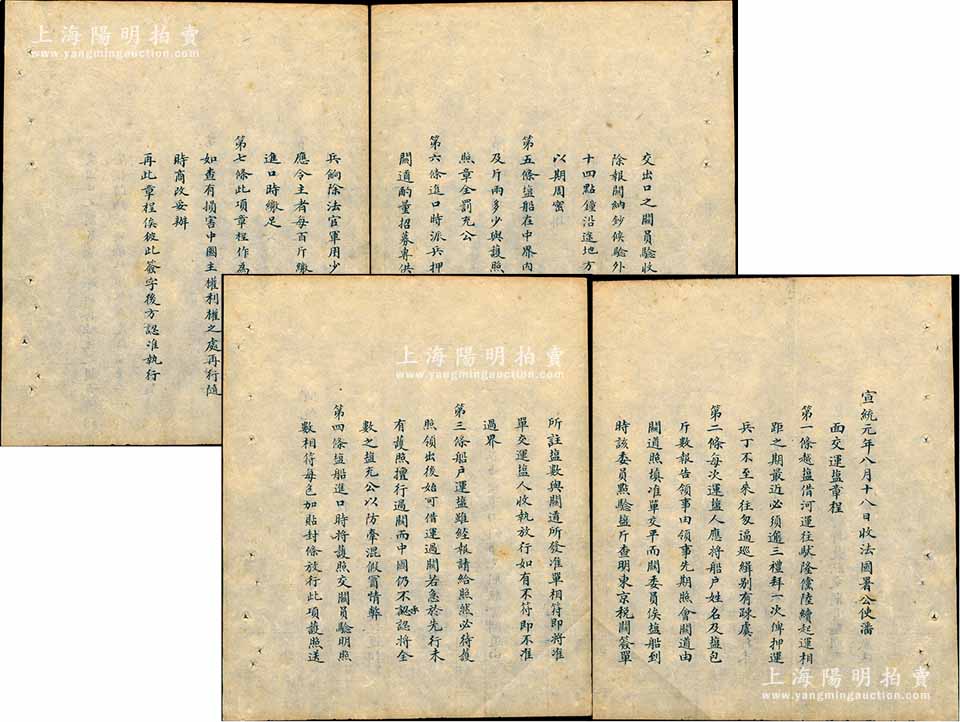 宣統元年八月十八日收法國署公使潘
面交運塩章程
第一條越塩借河運往猷隆儻陸續起運相
距之期最近必須邀三禮拜一次俾押運
兵丁不至來往匆逼巡緝別有疎虞
第二條每次運塩人應將船户姓名及塩包
斤數報告領事由領事先期照會關道由
關道照填准單交平而關委員俟塩船到
時該委員點驗塩斤查明東京税關簽單
所註塩數與關道所發准單相符即將准
單交運塩人收執放行如有不符即不准
過界
第三條船户運塩雖經報請給照然必待護
照領出後始可借運過關若急於先行未
有護照擅行過關而中國仍不承認將全
數之塩充公以防牽混假冒情弊
第四條塩船進口時將護照交關員驗明照
數相符每包加貼封條放行此項護照送
交出口之關員驗收
除報關納鈔候驗外
十四點鐘沿途地方
以期周密
第五條塩船在中界內
及斤兩多少與護照
照章全罰充公
第六條進口時派兵押
關道酌量招募專供
兵餉除法官軍用少
應令主者每百斤繳
進口時繳足
第七條此項章程作為
如查有損害中國主權利權之處再行隨
時商改妥辦
再此章程俟彼此簽字後方認准執行
上海陽明拍賣
www.yangmingauction.com
上海陽明拍賣
www.yangmingauction.com
上海陽明拍賣
www.yangmingauction.com
上海陽明拍賣
www.yangmingauction.com